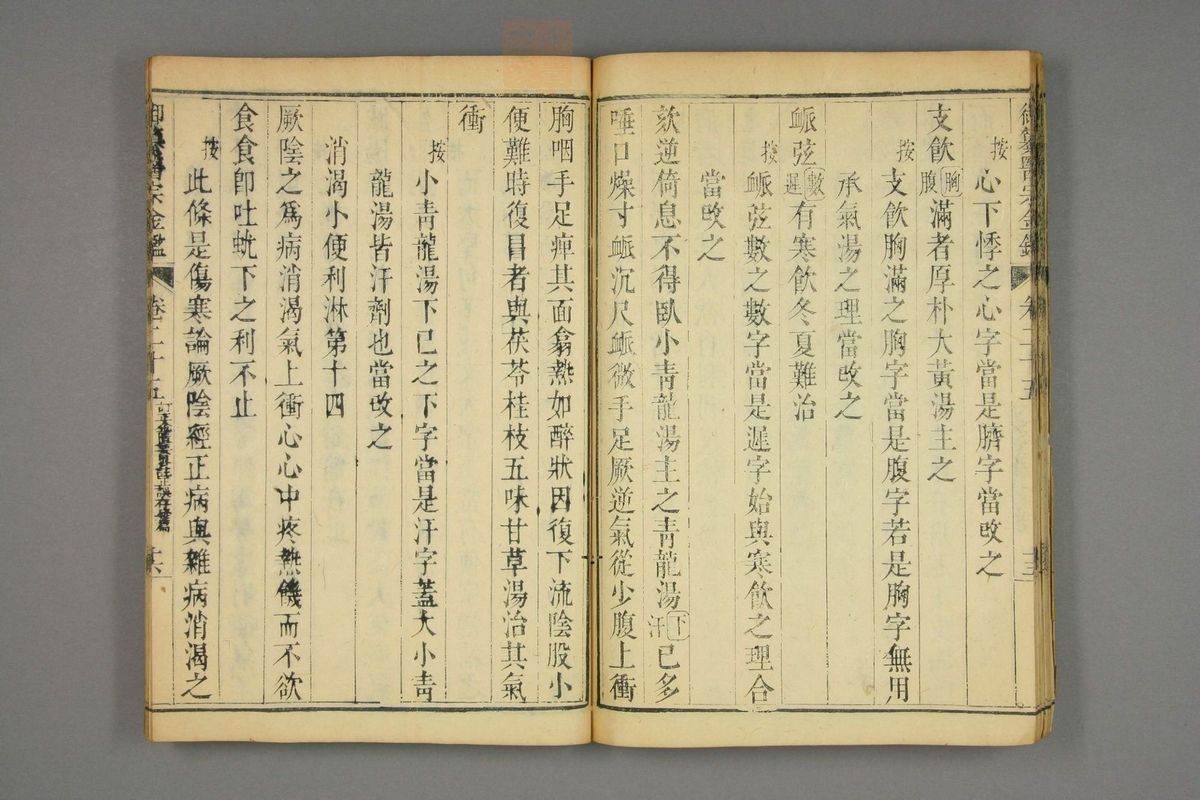 按心下悸之心字當是臍字當攺之
支飲胸腹滿者厚朴大黃湯主之
按支飲胸滿之胸字當是腹字若是胸字無用
承氣湯之理當攺之
脈弦數遲有寒飲冬夏難治
按脈弦數之數字當是遲字始與寒飲之理合
當攺之
欬逆倚息不得臥小青龍湯主之青龍湯下汗已多
唾口燥寸脈沉尺脈微手足厥逆氣從少腹上衝
胸咽手足痺其面翕熱如醉狀因復下流陰股小
便難時復冒者與茯苓桂枝五味甘草湯治其氣
衝
按小青龍湯下已之下字當是汗字蓋大小青
龍湯皆汗劑也當攺之
消渴小便利淋第十四
厥陰之爲病消渴氣上衝心心中疼熱饑而不欲
食食卽吐蚘下之利不止
按此條是傷寒論厥陰經正病與雜病消渴之
御纂醫宗金鑑 卷二十五